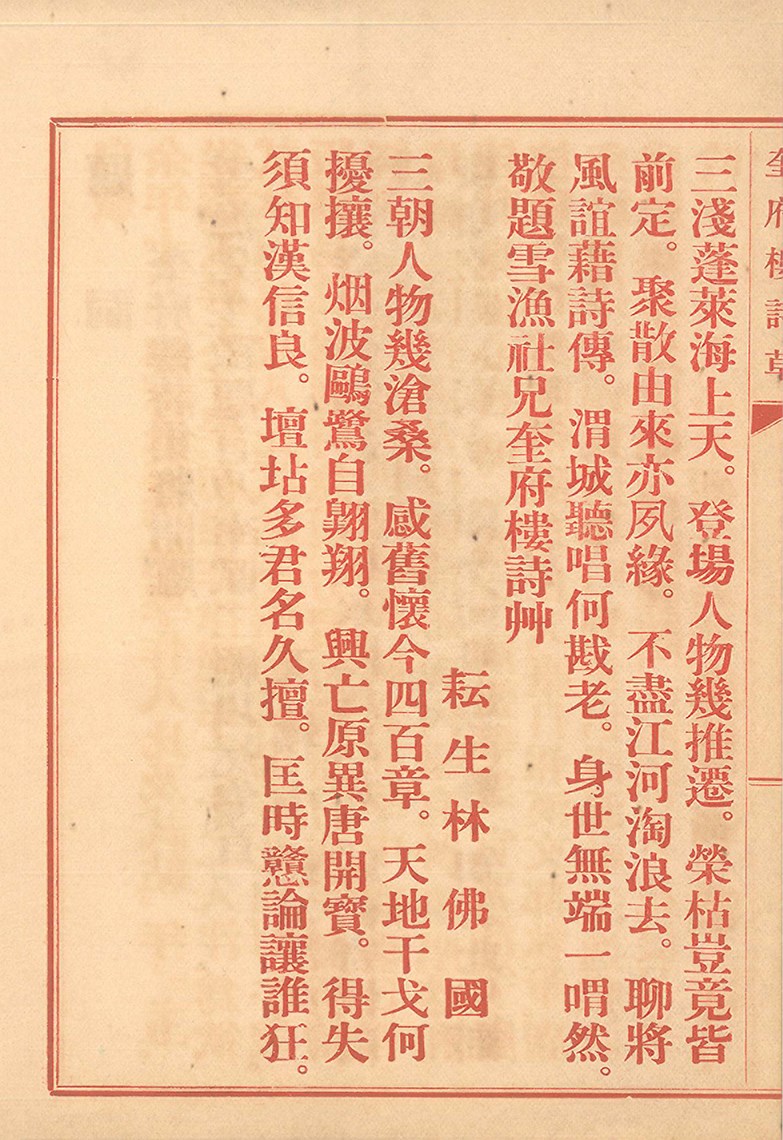 奎府樓詩草
三淺蓬萊海上天。登場人物幾推遷。榮枯豈竟皆
前定。聚散由來亦夙緣。不盡江河淘浪去。聊將
風誼藉詩傳。渭城聽唱何戡老。身世無端一喟然。
敬題雪漁社兄奎府樓詩艸
耘生林佛國
三朝人物幾滄桑。感舊懷今四百章。天地干戈何
擾攘。烟波鷗鷺自翺翔。興亡原異唐開寶。得失
須知漢信良。壇坫多君名久擅。匡時戇論讓誰狂。